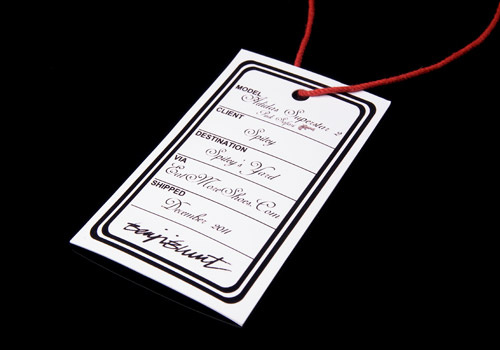 MODEL
Adidas Superstar 2
CLIENT
Spitey
DESTINATION
Spitey's Yard
VIA
EatMoreShoes.Com
SHIPPED
December 2011
benjiblunt